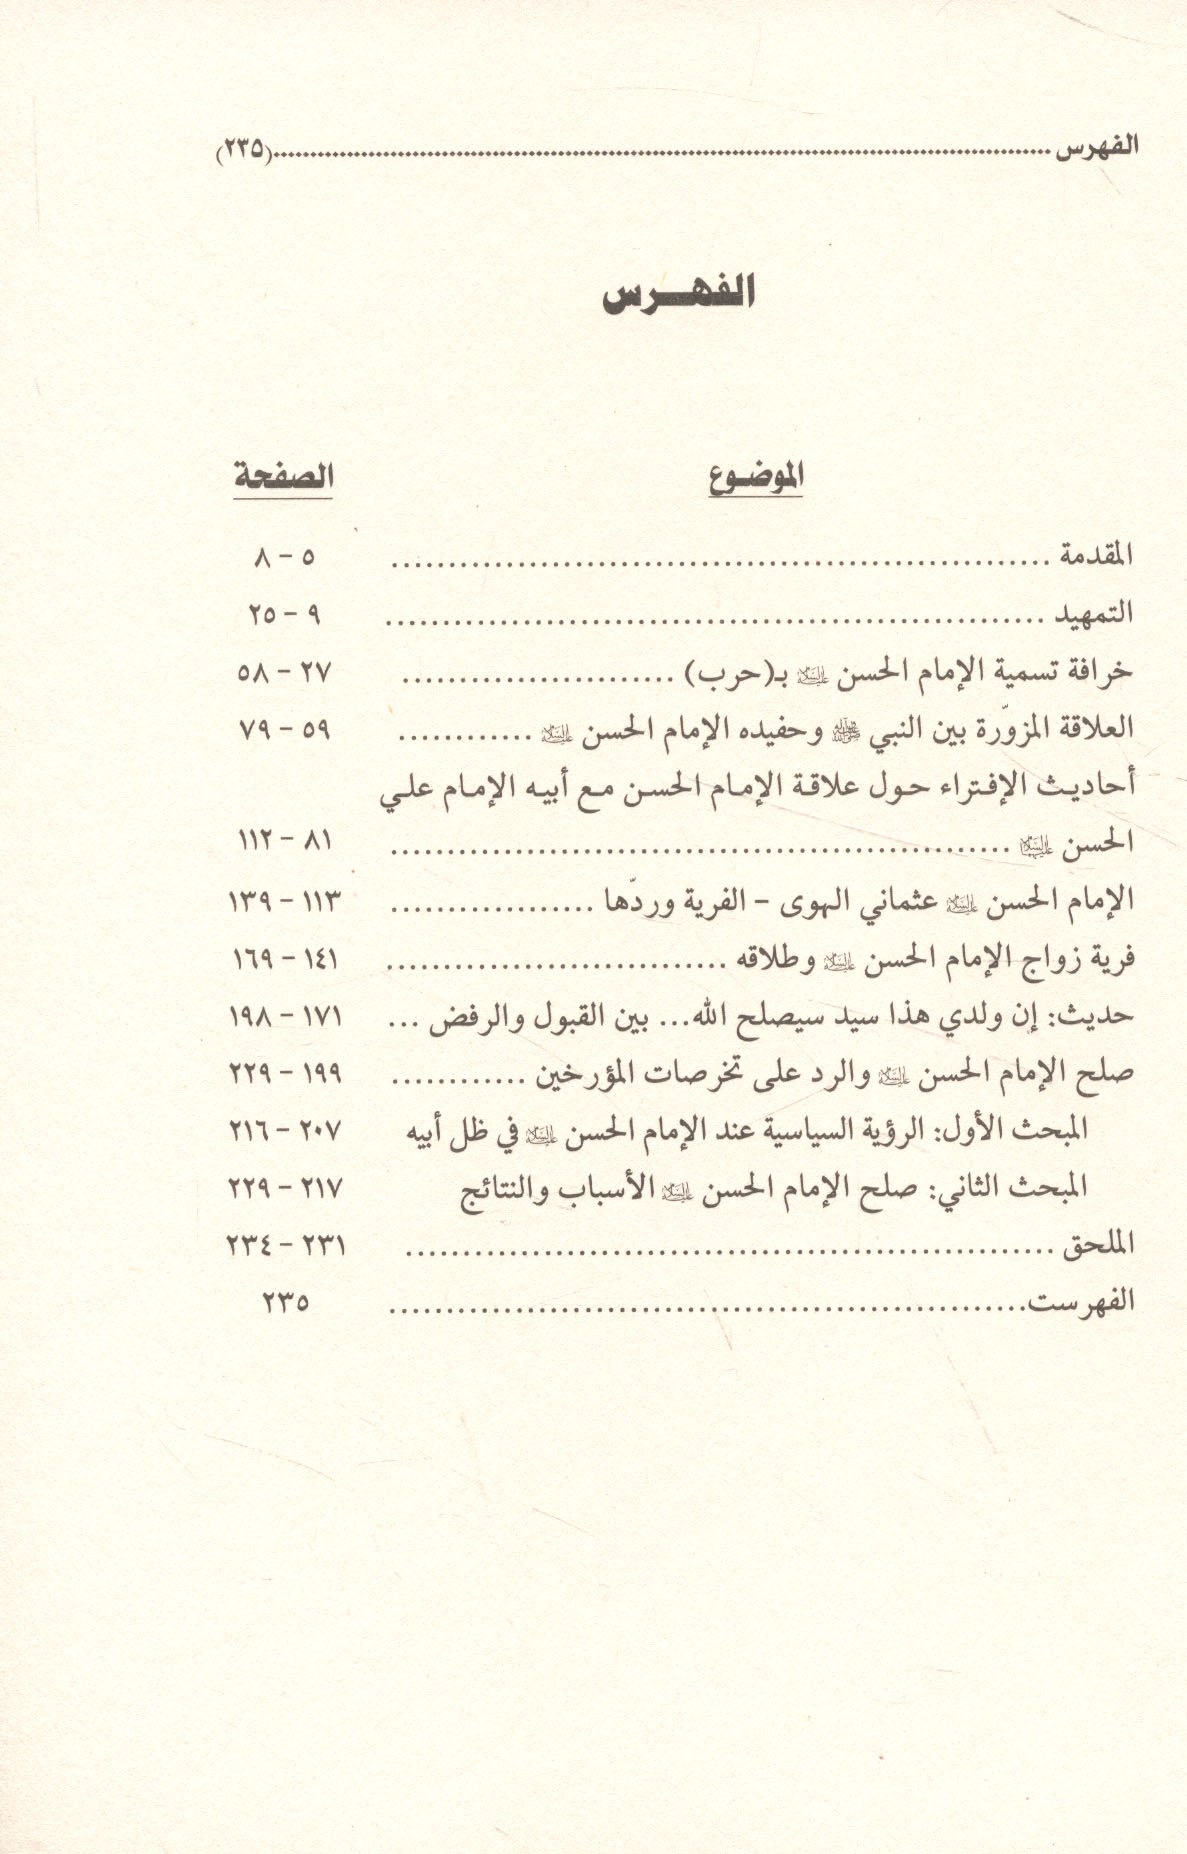 الفهرس ........................................(٢٣٥)
الفهـــرس
الموضوع الصفحة
المقدمة ........................................ ٥ – ٨
التمهيد ........................................ ٩ – ٢٥
خرافة تسمية الإمام الحسن عليه السلام بـ(حرب) ........................ ٢٧ – ٥٨
العلاقة المزوّرة بين النبي ﷺ وحفيده الإمام الحسن عليه السلام ............ ٥٩ – ٧٩
أحاديث الإفتراء حول علاقة الإمام الحسن مع أبيه الإمام علي
الحسن عليه السلام ........................................ ٨١ – ١١٢
الإمام الحسن عليه السلام عثماني الهوى – الفرية وردّها .................. ١١٣ – ١٣٩
فرية زواج الإمام الحسن عليه السلام وطلاقه .............................. ١٤١ – ١٦٩
حديث: إن ولدي هذا سيد سيصلح الله... بين القبول والرفض ... ١٧١ – ١٩٨
صلح الإمام الحسن عليه السلام والرد على تخرصات المؤرخين ............ ١٩٩ – ٢٢٩
المبحث الأول: الرؤية السياسية عند الإمام الحسن عليه السلام في ظل أبيه ٢٠٧ – ٢١٦
المبحث الثاني: صلح الإمام الحسن عليه السلام الأسباب والنتائج ٢١٧ – ٢٢٩
الملحق ........................................ ٢٣١ – ٢٣٤
الفهرست........................................ ٢٣٥